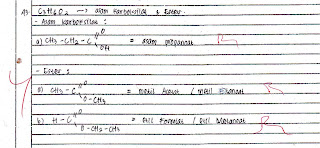 C3H6O2 → asam karboksilat & Ester.
- Asam karboksilat :
a) CH3 - CH2 - C =O OH = asam propanoat
- Ester :
a) CH3 - C =O O - CH3 = metil Asetat / metil Etanoat
b) H - C =O O - CH2 - CH3 = Etil Format / Etil Metanoat